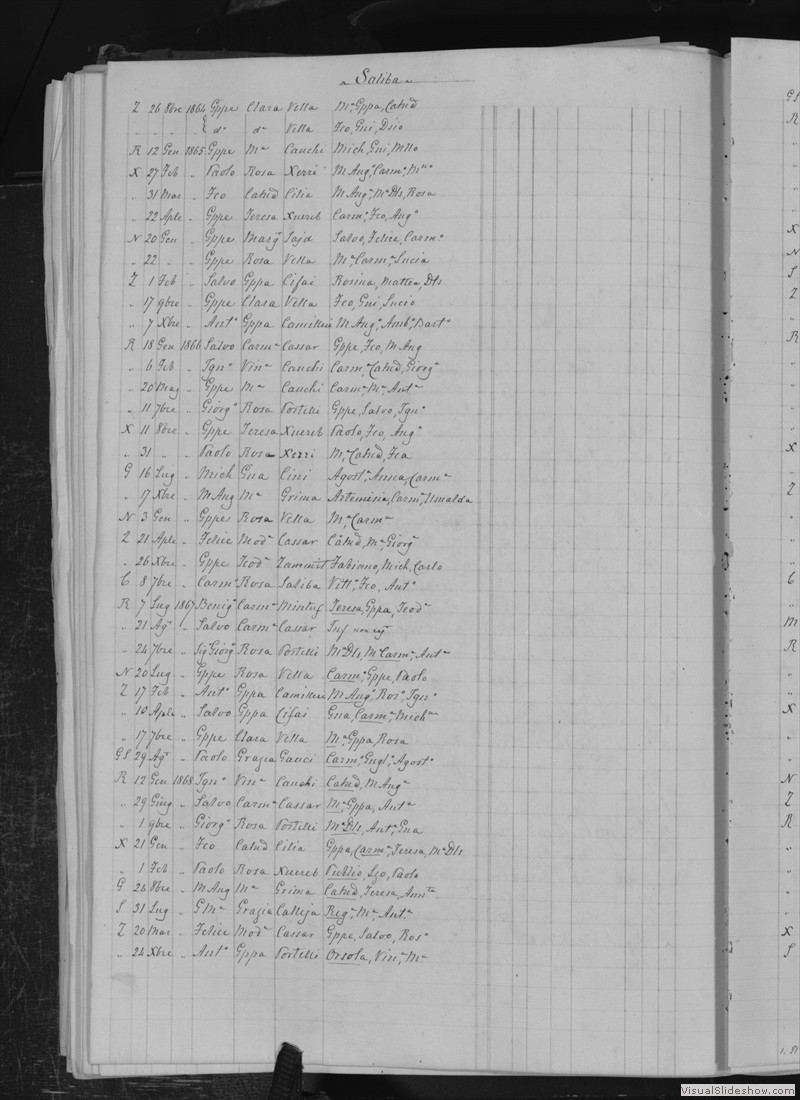 Saliba
Z 26 8bre 1864 Gppe Clara Vella Mª, Gppa, Catnd
" " " " dº dª Vella Fco, Gni, Dnio
R 12 Gen 1865 Gppe Mª Cauchi Mich, Gni, Mllo
X 27 Feb " Paolo Rosa Xerri M Angª, Carmª, Mnª
" 31 Mar " Fco Catnd Cilia M Angª, Mª Dls, Rosa
" 22 Aple " Gppe Teresa Xuereb Carmª, Fco, Angª
N 20 Gen " Gppe Margª Sajd Salvo, Felice, Carmª
" 22 " " Gppe Rosa Vella Mª, Carmª, Lucia
Z 1 Feb " Salvo Gppa Cifai Rosina, Mattea, Dls
" 17 9bre " Gppe Clara Vella Fco, Gni, Lucio
" 7 Xbre " Antº Gppa Camilleri M Angº, Ambº, Bartº
R 18 Gen 1866 Salvo Carmª Cassar Gppe, Fco, M Ang
" 6 Feb " Ignº Vinª Cauchi Carmª, Catnd, Giorgª
" 20 Mag " Gppe Mª Cauchi Carmª, Mª, Antª
" 11 7bre " Giorgº Rosa Portelli Gppe, Salvo, Ignº
X 11 8bre " Gppe Teresa Xuereb Paolo, Fco, Angº
" 31 " " Paolo Rosa Xerri M, Catnd, Fca
G 16 Lug " Mich Gna Cini Agostª, Anna, Carmª
" 17 Xbre " M Ang Mª Grima Artemisia, Carmª, Ismalda
N 3 Gen " Gppe Rosa Vella Mª, Carmª
Z 21 Aple " Felice Modª Cassar Catnd, Mª, Giorgª
" 26 Xbre " Gppe Teodª Zammit Fabiano, Mich, Carlo
C 8 7bre " Carmº Rosa Saliba Vittº, Fco, Antº
R 7 Lug 1867 Benigº Carmª Mintuf Teresa, Gppa, Teodª
" 21 Agº " Salvo Carmª Cassar Inf non regº
" 24 7bre " Sgº Giorgº Rosa Portelli Mª Dls, M Carmª, Antª
N 20 Lug " Gppe Rosa Vella Carmº, Gppe, Paolo
Z 17 Feb " Antº Gppa Camilleri M Angº, Rosº, Ignº
" 10 Aple " Salvo Gppa Cifai Gna, Carmª, Michª
" 17 7bre " Gppe Clara Vella Mª, Gppa, Rosa
GS 29 Agº " Paolo Grazia Gauci Carmº, Guglº, Agostº
R 12 Gen 1868 Ignº Vinª Cauchi Catnd, M Angª
" 29 Giug " Salvo Carmª Cassar Mª, Gppa, Antª
" 1 9bre " Giorgº Rosa Portelli Mª Dls, Antª, Gna
X 21 Gen " Fco Catnd Cilia Gppa, Carmª, Teresa, Mª Dls
" 1 Feb " Paolo Rosa Xuereb Publio, Lzo, Paolo
G 24 8bre " M Ang Mª Grima Catnd, Teresa, Anntª
S 31 Lug " G Mª Grazia Calleja Regª, Mª, Antª
Z 20 Mar " Felice Modª Cassar Gppe, Salvo, Rosº
" 24 Xbre " Antº Gppa Portelli Orsola, Vinª, Mª
GS
R
X
N
S
Z
R
X
Z
C
M
R
X
N
Z
R
X
S
VisualSlideshow.com